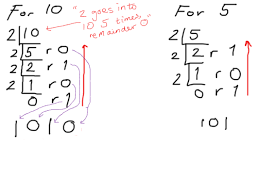 For 10
"2 goes into
10 5 times,
remainder 0"
2 10
2 5 r 0
2 2 r 1
2 1 r 0
0 r 1
1 0 1 0
For 5
2 5
2 2 r 1
2 1 r 0
0 r 1
101